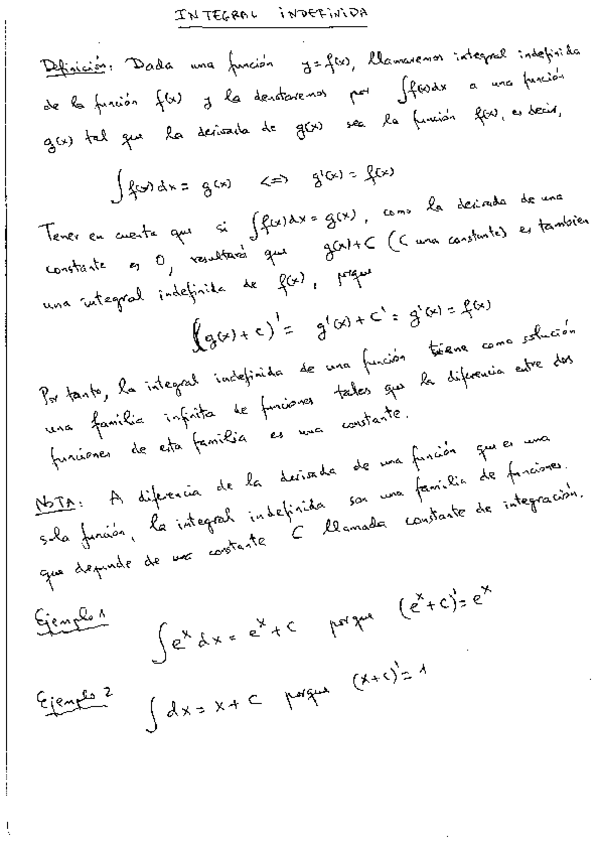 INTEGRAL INDEFINIDA
Definición: Dada una función y=f(x), llamaremos integral indefinida
de la función f(x) y la denotaremos por ∫f(x)dx a una función
g(x) tal que la derivada de g(x) sea la función f(x), es decir,
∫f(x)dx = g(x) <=> g'(x) = f(x)
Tener en cuenta que si ∫f(x)dx = g(x), como la derivada de una
constante es 0, resultará que g(x)+C (C una constante) es tambien
una integral indefinida de f(x), porque
(g(x)+c)' = g'(x)+C' = g'(x) = f(x)
Por tanto, la integral indefinida de una función tiene como solución
una familia infinita de funciones tales que la diferencia entre dos
funciones de esta familia es una constante.
NOTA: A diferencia de la derivada de una función que es una
sola función, la integral indefinida son una familia de funciones.
que depende de una constante C llamada constante de integración.
Ejemplo 1
∫e^x dx = e^x + c porque (e^x + c)' = e^x
Ejemplo 2
∫dx = x + C porque (x+c)' = 1